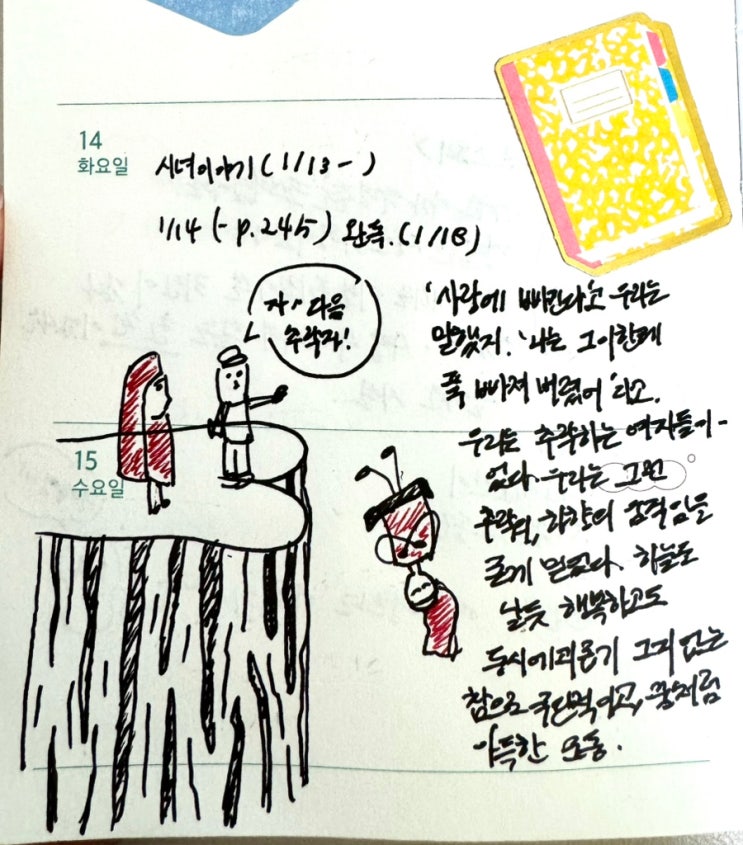 14
화요일
시녀이야기 (1/13 - )
1/14 (- p.245) 완독. (1/18)
자~ 다음
추락자!
'사랑에 빠진다'고 우리는
말했지. '나는 그이한테
푹 빠져 버렸어'라고.
우리는 추락하는 여자들이-
었다. 우리는 그런
추락의, 하향의 움직임을
굳게 믿었다. 하늘도
날듯 행복하고도
동시에 괴롭기 그지 없는
참으로 극단적이고, 꿈처럼
아득한 요동.
15
수요일